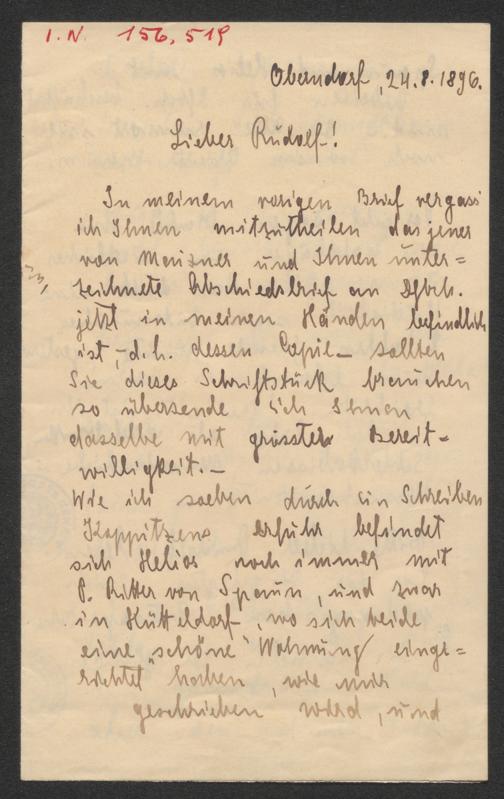 I.N. 156.519
Oberndorf, 24.8.1896.
Lieber Rudolf!
In meinem vorigen Brief vergass
ich Ihnen mitzutheilen das jener
von Meixner und Ihnen unter=
zeichnete Abschiedsbrief an
jetzt in meinen Händen befindlich
ist, – d.h. dessen Copie – sollten
Sie dieses Schriftstück brauchen
so übersende ich Ihnen
dasselbe mit grösster Bereit=
willigkeit. –
Wie ich soeben durch ein Schreiben
Koppitzens erfuhr befindet
sich Helios noch immer mit
P. Ritter von Spaun, und zwar
in Hütteldorf, wo sich beide
eine „schöne" Wohnung einge=
richtet haben, wie mir
geschrieben ward, und